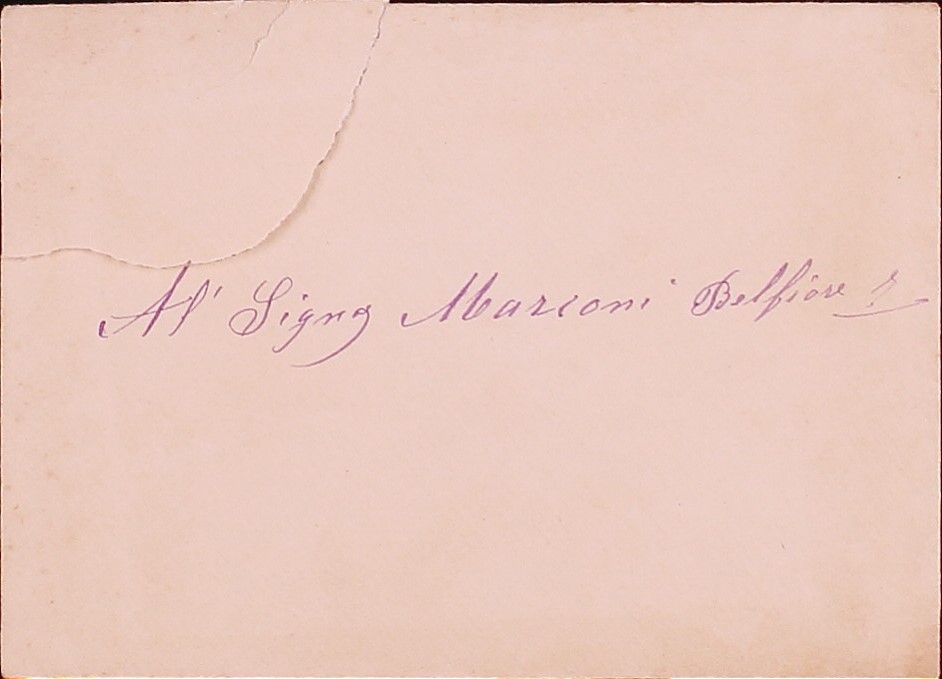 Al' Signo Marconi Belfiore